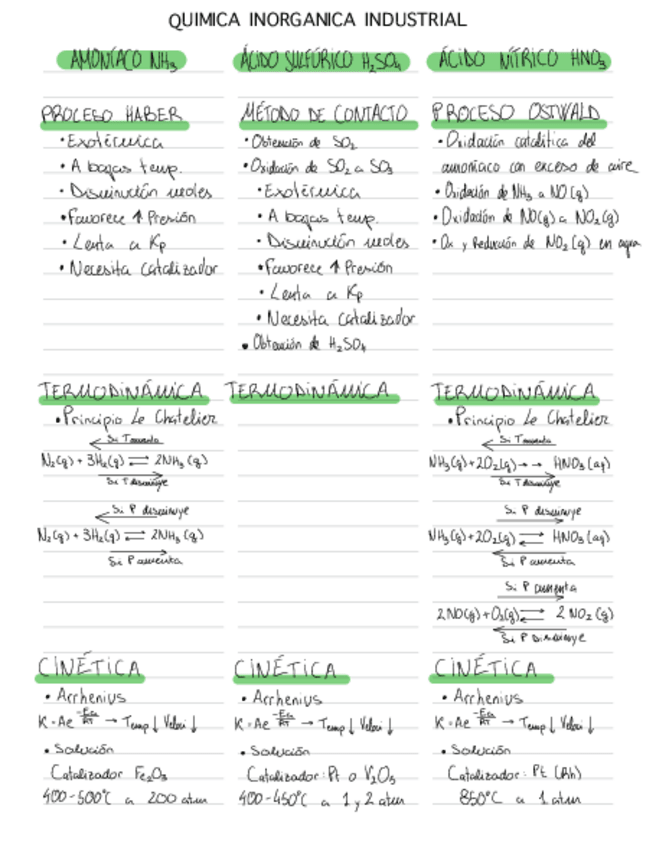 QUIMICA INORGANICA INDUSTRIAL
AMONÍACO NH₃
PROCESO HABER
• Exotérmica
• A bajas temp.
• Disminución moles
• Favorece ↑ Presión
• Lenta a Kp
• Necesita catalizador
TERMODINÁMICA
• Principio Le Chatelier
Si T aumenta
N₂(g) + 3H₂(g) ⇌ 2NH₃ (g)
Si T disminuye
Si P disminuye
N₂(g) + 3H₂(g) ⇌ 2NH₃ (g)
Si P aumenta
CINÉTICA
• Arrhenius
K = Ae^(-Ea/RT) → Temp ↓ Veloci ↓
• Solución
Catalizador Fe₂O₃
400-500°C a 200 atm
ÁCIDO SULFÚRICO H₂SO₄
MÉTODO DE CONTACTO
• Obtención de SO₂
• Oxidación de SO₂ a SO₃
• Exotérmica
• A bajas temp.
• Disminución moles
• Favorece ↑ Presión
• Lenta a Kp
• Necesita catalizador
• Obtención de H₂SO₄
TERMODINÁMICA
CINÉTICA
• Arrhenius
K = Ae^(-Ea/RT) → Temp ↓ Veloci ↓
• Solución
Catalizador: Pt o V₂O₅
400-450°C a 1 y 2 atm
ÁCIDO NÍTRICO HNO₃
PROCESO OSTWALD
• Oxidación catalítica del
amoníaco con exceso de aire
• Oxidación de NH₃ a NO (g)
• Oxidación de NO(g) a NO₂(g)
• Ox y Reducción de NO₂ (g) en agua
TERMODINÁMICA
• Principio Le Chatelier
Si T aumenta
NH₃(g) + 2O₂(g) → → HNO₃ (aq)
Si T disminuye
Si P disminuye
NH₃(g) + 2O₂(g) ⇌ HNO₃ (aq)
Si P aumenta
Si P aumenta
2NO(g) + O₂(g) ⇌ 2 NO₂ (g)
Si P Disminuye
CINÉTICA
• Arrhenius
K = Ae^(-Ea/RT) → Temp ↓ Veloci ↓
• Solución
Catalizador: Pt (Rh)
850°C a 1 atm